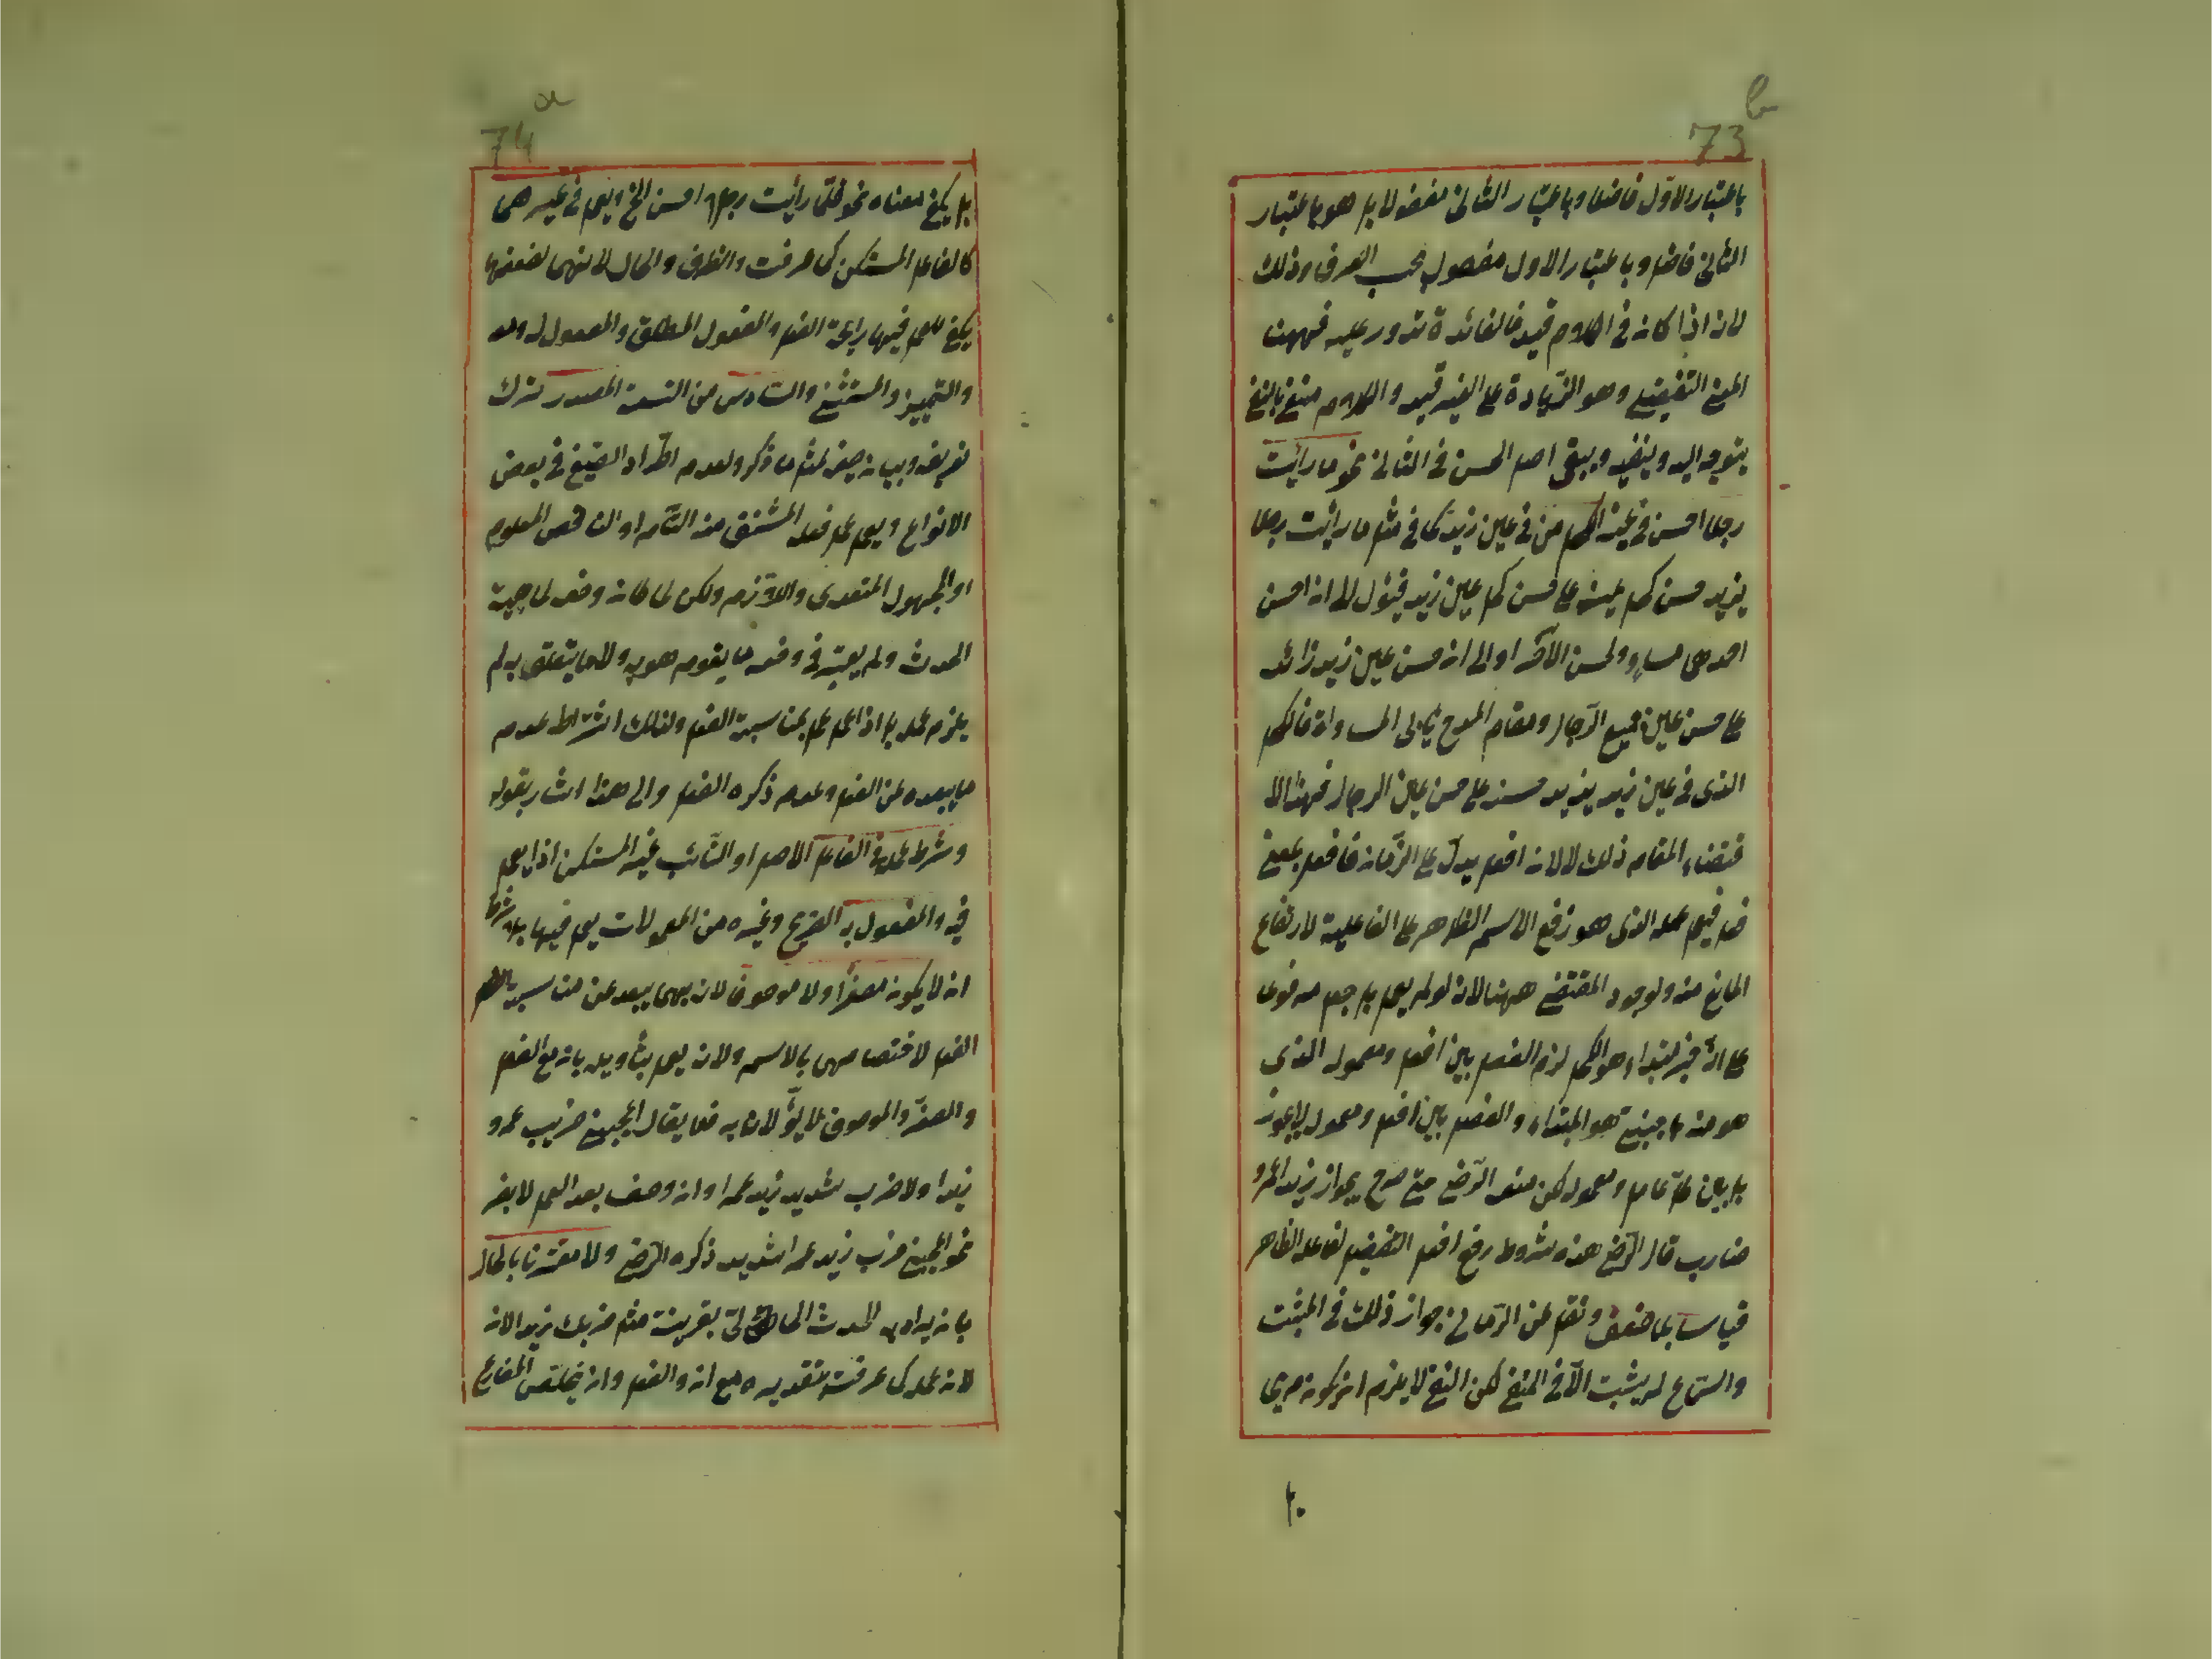 73 b
باعتبار الاول فاضلا وباعتبار الثانى مفضولا بل هو باعتبار
الثانى فاضل وباعتبار الاول مفضول بحسب العرف وذلك
لانه اذا كان فى الكلام قيد فالفائدة تدور عليه فههنا
المعنى التفضيل وهو الزيادة على الغير قيد والكلام منفى بالنفى
يتوجه اليه وينفيه ويبقى اصل الحسن فى الثانى نحو ما رأيت
رجلا احسن فى عينه الكحل من فى عين زيد كما فى مثل ما رأيت رجلا
يزيد حسن كحل عينه على حسن كحل عين زيد فيئول الى انه احسن
احدهما مساو ولحسن الآخر او الى انه حسن عين زيد زائد
على حسن عين جميع الرجال ومقام المدح يأبى المساواة فالكحل
الذى فى عين زيد يزيد حسنه على حسن عين الرجال فهذا الا
فتضاء المقام ذلك لا لان افعل يدل على الزمان فافعل بمعنى
فعل فيعمل عمله الذى هو رفع الاسم الظاهر على الفاعلية لارتفاع
المانع منه ولوجود المقتضى ههنا لانه لو لم يعمل بل جعل مرفوعا
على انه خبر مبتداء هو الكحل لزم الفصل بين افعل ومعموله الذى
هو منه باجنبى هو المبتداء والفصل بين افعل ومعموله لا يجوز
بل بين كل عامل ومعموله لكن منعه الرضى حتى صرح بجواز زيدا عمرو
ضارب قال الرضى هذه شروط رفع افعل التفضيل لفاعله الظاهر
قياسا بما ضعف ونقل عن الرمانى جواز ذلك فى المثبت
والسماع لم يثبت الا فى المنفى لكن النفى لا يلزم ان يكون صريحا
74 a
بل يكفى معناه نحو قلما رأيت رجلا احسن الخ ويعمل فى غيرهما
كالفاعل المستكن كما عرفت والظرف والحال لا لانهما لضعفهما
يكفى للعمل فيهما رايحة الفعل والمفعول المطلق والمفعول له ومعه
والتمييز والمستثنى والسادس من التسعة المصدر ترك
تعريفه وبيان صيغه لمثل ما ذكر ولعدم اطراد الصيغ فى بعض
الانواع ويعمل عمل فعله المشتق منه التام او الناقص المعلوم
او المجهول المتعدى واللازم ولكن لما كان وضعه لماهية
الحدث ولم يعتبر فى وضعه ما يقوم هو به ولا ما يتعلق به لم
يلزم عمله بل اذا عمل عمل بمناسبة الفعل ولذلك اشترط عدم
ما يبعده عن الفعل وعدم ذكره الفعل والى هذا اشار بقوله
وشرط عمله فى الفاعل الاصل او النائب غير المستكن اذ يعمل
فيه والمفعول به الصريح وغيره من المعمولات يعمل فيها بلا شرط
ان لا يكون مصغرا ولا موصوفا لان بهما يبعد عن مناسبة
الفعل لاختصاصهما بالاسم ولانه يعمل بتأويله بان مع الفعل
والمصغر والموصوف لا يؤلان به فلا يقال اعجبنى ضريب عمرو
زيدا ولا ضرب شديد زيد عمرا وان وصف بعد العمل لا يضر
نحو اعجبنى ضرب زيد عمرا شديد ذكره الرضى ولا مقترنا بالحال
بان يراد به الحدث الحالى بقرينة مثل ضربك زيدا الآن
لانه عمله كما عرفت بتقديره مع ان والفعل وان يخلص المضارع